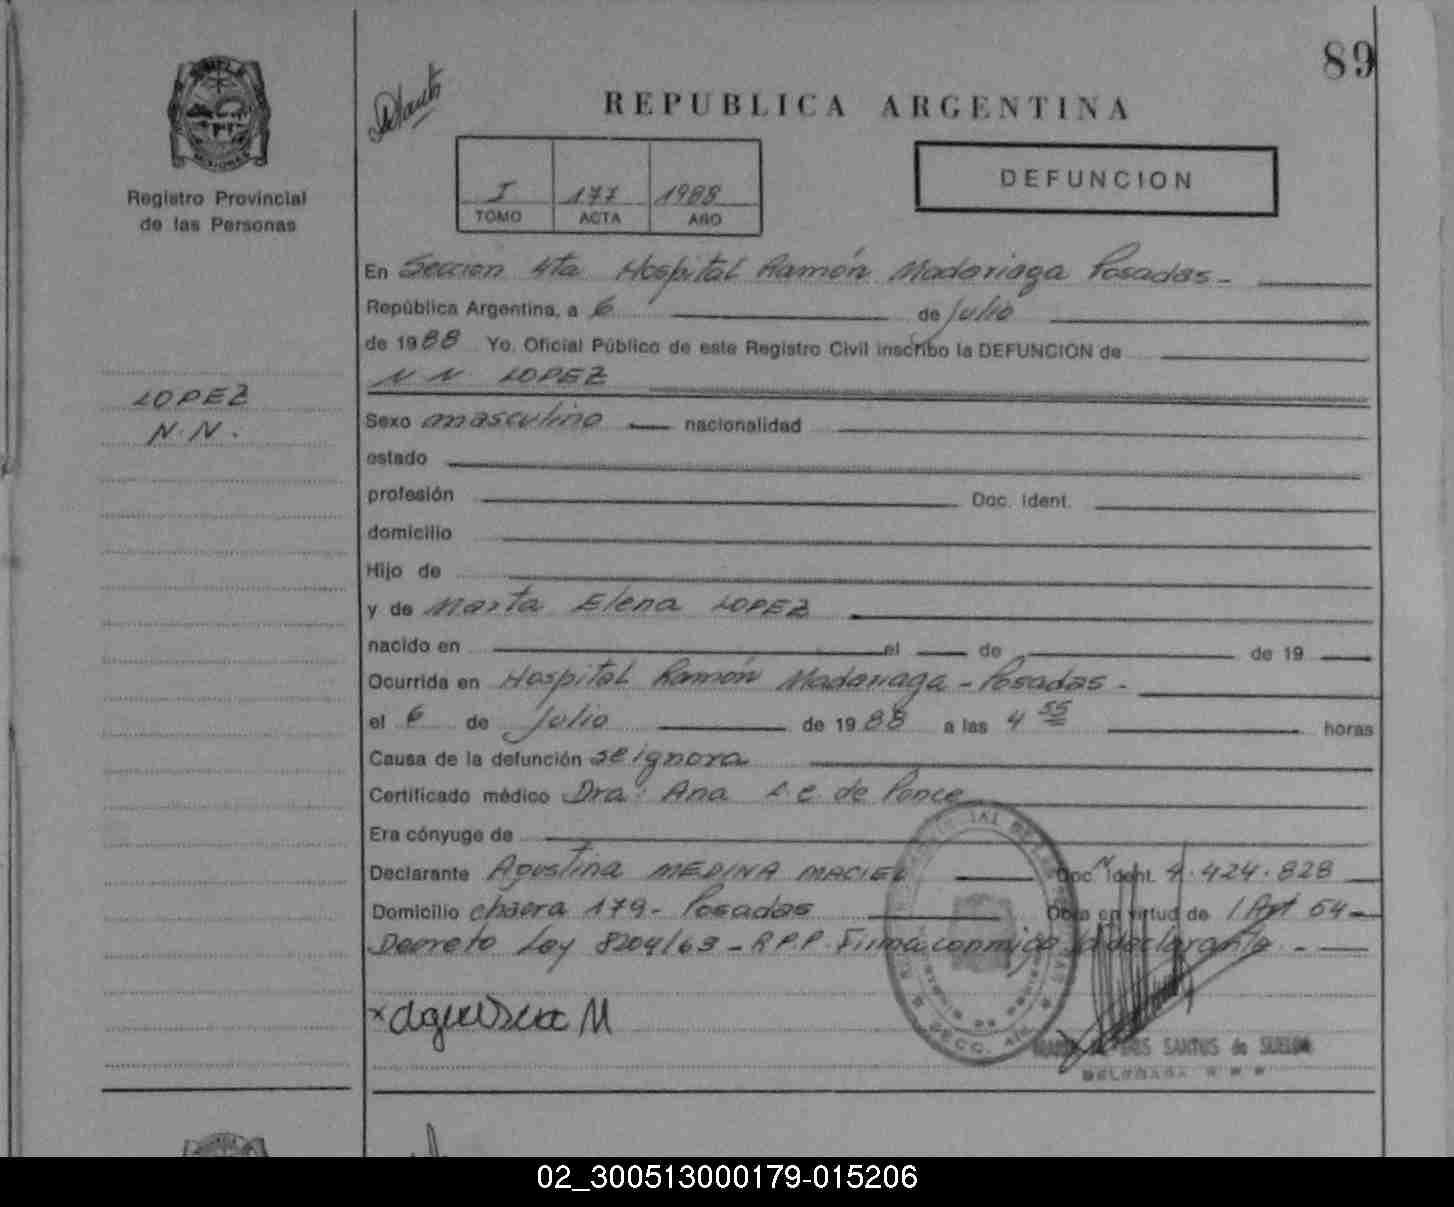 89
REPUBLICA ARGENTINA
DEFUNCION
I 177 1988
TOMO ACTA AÑO
Registro Provincial
de las Personas
LOPEZ
N.N.
En Seccion 4ta Hospital Ramón Madariaga Posadas-
República Argentina, a 6 de Julio
de 1988 Yo, Oficial Público de este Registro Civil inscribo la DEFUNCION de
N N LOPEZ
Sexo masculino nacionalidad
estado
profesión Doc. Ident.
domicilio
Hijo de
y de Marta Elena LOPEZ
nacido en el de de 19
Ocurrida en Hospital Ramón Madariaga - Posadas-
el 6 de Julio de 1988 a las 4 55 horas
Causa de la defunción se ignora
Certificado médico Dra: Ana L. C. de Ponce
Era cónyuge de
Declarante Agustina MEDINA MACIEL Doc. Ident. 4.424.828
Domicilio chacra 179- Posadas Obra en virtud de Art 54-
Decreto Ley 8204/63 - R.P.P. Firma conmigo la declarante.-
SANTOS de
DELEGADA
02_300513000179-015206